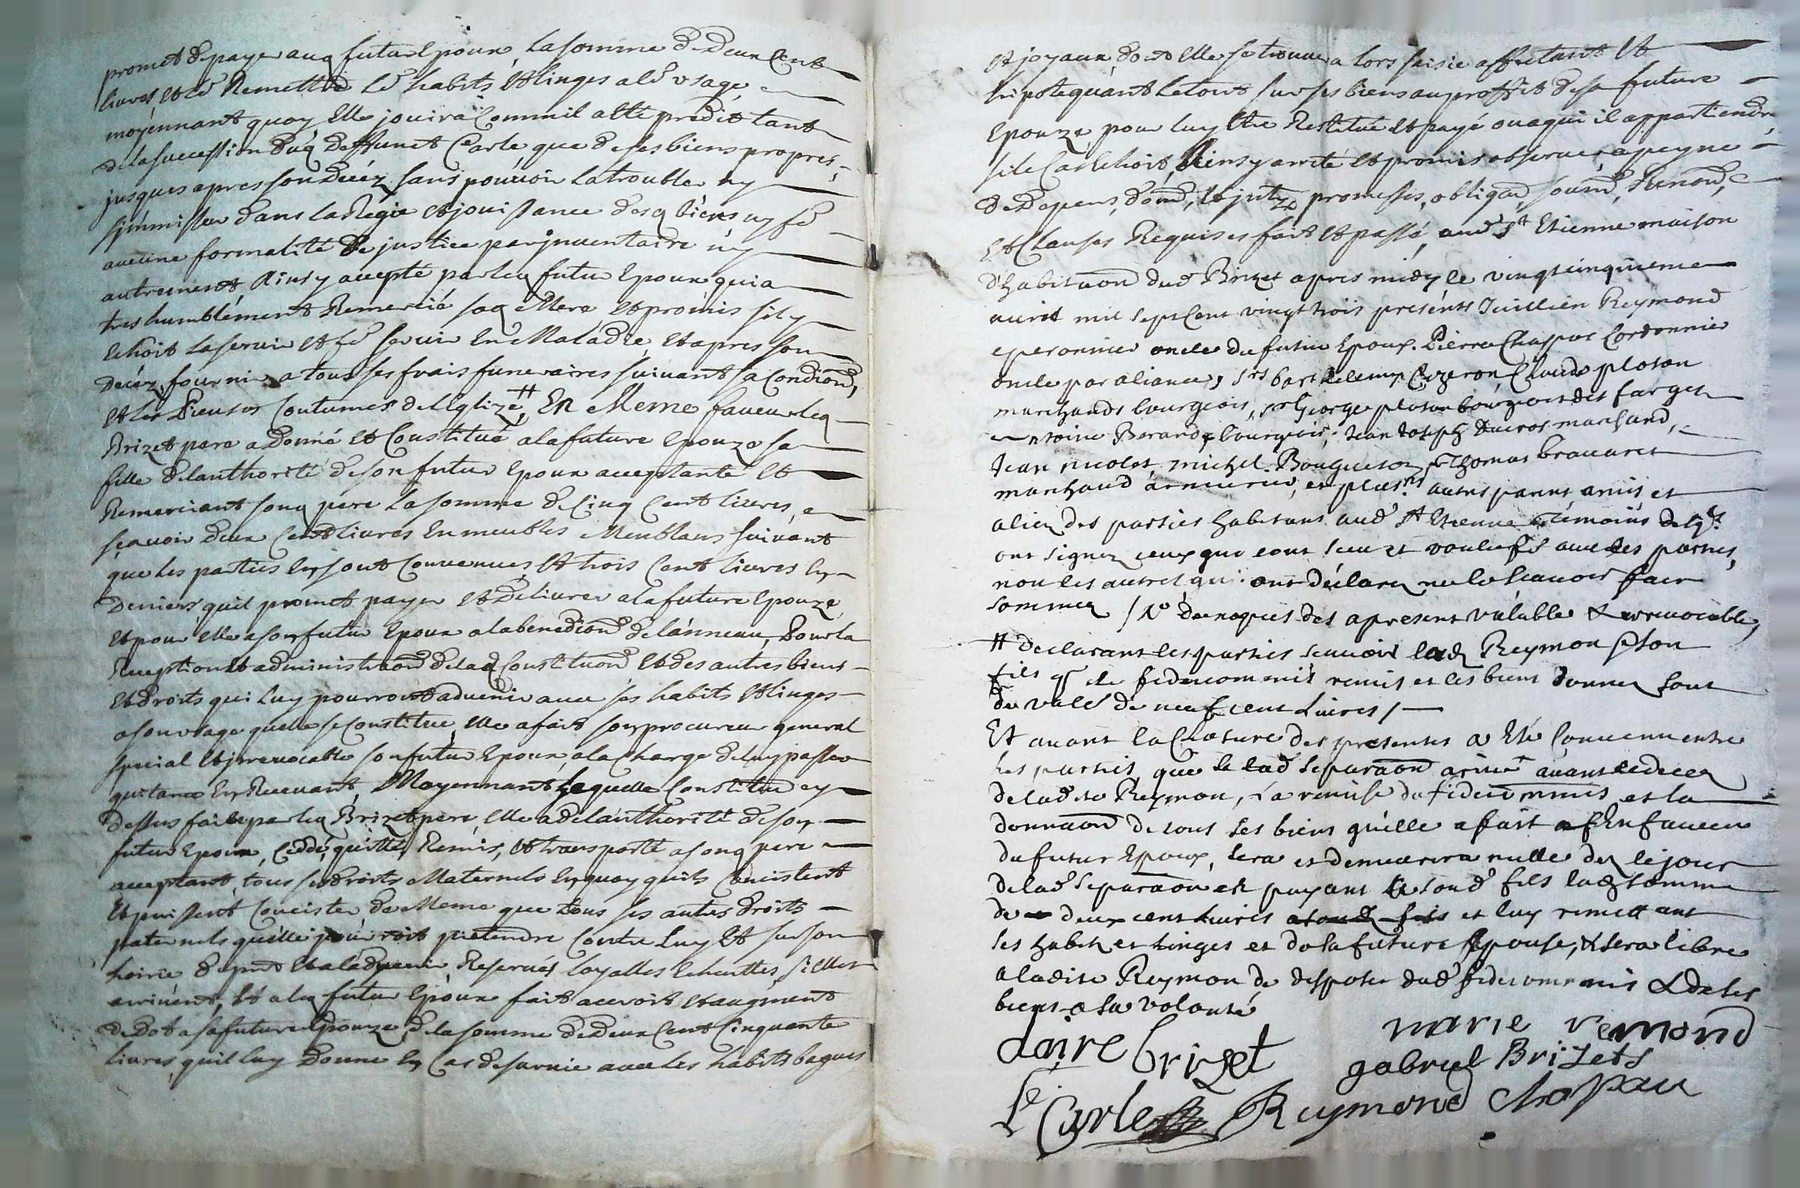 promet de payer aud futur Epoux la somme de Deux Cent
livres et de Remettre les habits et linges a le usage
moyennant quoy Elle jouira Comm'il a ette predit tant
de la succession dud deffunct Carle que de ses biens propres,
jusques apres son Deces sans pouvoir la troubler ny
s'jmmisser dans la Regie et jouissance desd biens ny fe
aucune formalité de justice par jnventaire ny
autrement Ainsy accepté par led futur Epoux qui a
tres humblement Remercié sad Mere et promis s'il y
Echoit la servir et fe servir En Maladie et apres son
deces fournir a tous ses frais funeraires suivant sa Condion,
et les Pieuses Coutumes de l'Eglize ⧺, En Meme faveur led
Brizet pere a Donné et Constitué a la future Epouze sa
fille de l'authorité de son futur Epoux acceptante et
Remerciant sond pere la somme de Cinq Cent livres,
sçavoir deux Cent livres En meubles Meublans suivant
que les parties En sont Convenues et trois Cent livres En
Deniers qu'il promet payer et delivrer a la future Epouze
et pour Elle a son futur Epoux a la benedion de l'anneau, Pour la
Reception et administraon de lad Constituon et des autres biens
et droits qui luy pourront advenir avec ses habits et linges
a son usage qu'elle se Constitue Elle a fait son procureur general
special et jrrevocable son futur Epoux a la Charge de luy passer
quitance En Recevant Moyennant Laquelle Constituon cy
dessus faite par led Brizet pere Elle a de l'authorité de son
futur Epoux, Ceddé, quitté, Remis, et transporté a sond pere
acceptant tous ses droits Maternels En quoy qu'ils Consistent
et puissent Concister de Meme que tous ses autres droits
paternels qu'elle pretendre Contre luy et sur son
hoirie de pnt et a l'advenir Reservés loyalles Echeuttes, s'Elles
arrivent, et a led futur Epoux fait accroit et augment
de Dot a sa future Epouze de la somme de Deux Cent Cinquante
livres qu'il luy donne En Cas de survie avec les habits bagues
et joyaux dont elle se trouvera lors saisie affectant et
hipotequant le tout sur ses biens au proffit de sa future
Epouze pour luy Etre Restitué et payé ou a qui il appartiendra
si le Cas Echoit, Ainsy arreté et promis observer a peyne
de Depens, dom, et jntz promesses, obligaon, soumon, Renonon,
et Clauses Requises fait et passé, aud St Etienne maison
d'habitaon dud Brizet apres midy le vingt cinquieme
avril mil sept Cent vingt trois presents Juillien Reymond
eperonnier oncle du futur Epoux. Pierre Chappas Cordonnier
oncle par aliance, srs Barthelemy Cizeron, Claude ploton
marchands bourgeois, sr George ploton bourgeois des farges
antoine Berard bourgeois, Jean Joseph Ducros marchand,
Jean nicolas michel. Thomas bravaret
marchand armurier, et plusrs autres parents amis et
aliez des parties habitans aud St Etienne Temoins desqls
ont signez ceux qui l'ont sceu et voulu fe avec les parties,
non les autres qui ont declarez ne le scavoir faire
sommez / de nos pies des apresent valable & irrevocable,
⧺ declarant les parties scavoir lade Reymon et son
fils que le fideicommis remis et les biens donnez sont
de valeur de neuf cent Livres /
Et avant la Cloture des presentes a Eté Convenu entre
les parties que si lad separaon arrive avant le decez
de ladite Reymon, la remise du fideicommis et la
donnaon de tous ses biens qu'elle a fait En faveur
du futur Epoux, sera et demeurera nulle dez le jour
de lad separaon en payant a sond fils lad somme
de deux cent livres et luy remettant
ses habits et Linges et de la future Epouse, & sera libre
a ladite Reymon de disposer dud fideicommis & de ses
biens a sa volonté
claire brizet
marie remond
gabriel Brizets
le Carle Reymond Chapau